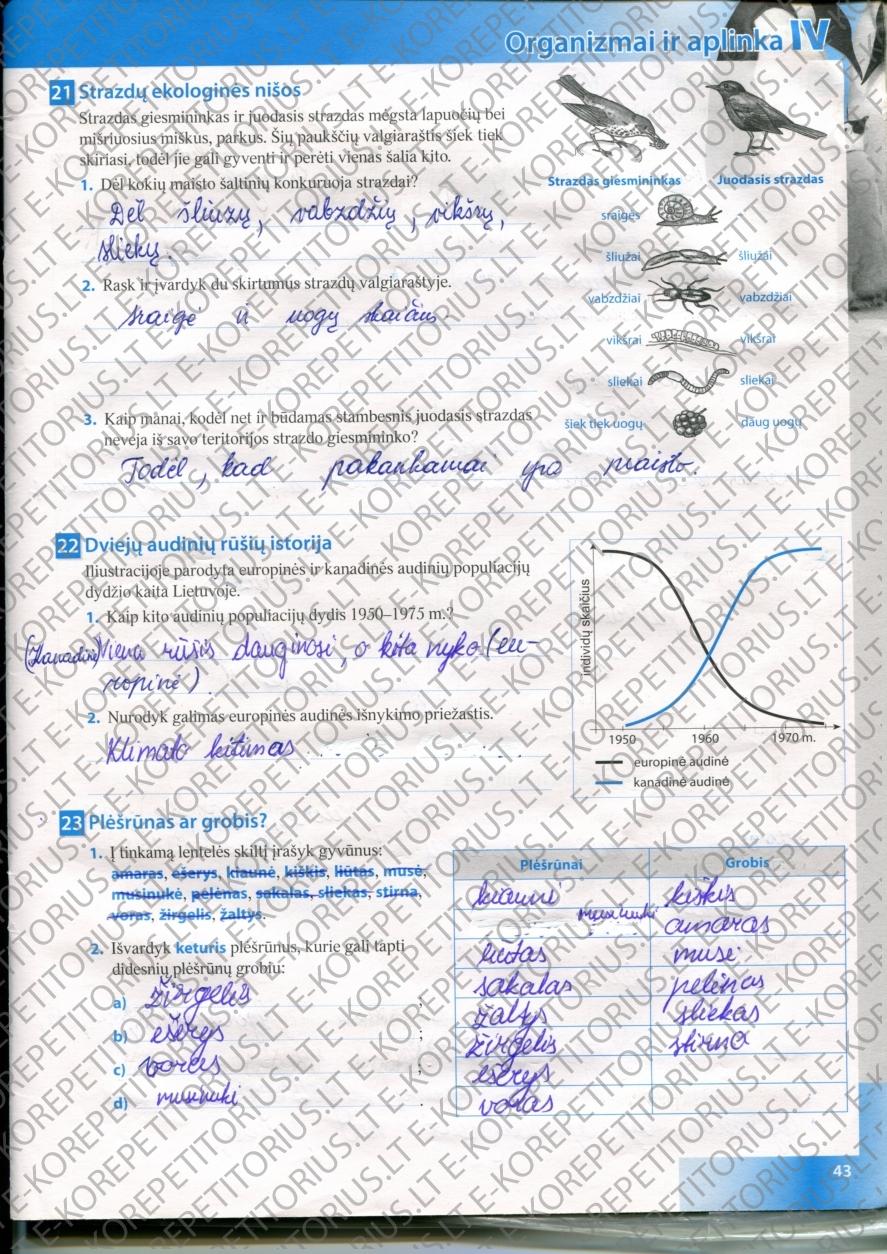 Organizmai ir aplinka IV
21 Strazdų ekologinės nišos
Strazdas giesmininkas ir juodasis strazdas mėgsta lapuočių bei
mišriuosius miškus, parkus. Šių paukščių valgiaraštis šiek tiek
skiriasi, todėl jie gali gyventi ir perėti vienas šalia kito.
1. Dėl kokių maisto šaltinių konkuruoja strazdai?
Dėl šliužų, vabzdžių, vikšrų,
sliekų.
2. Rask ir įvardyk du skirtumus strazdų valgiaraštyje.
sraigė ir uogų skaičius
3. Kaip manai, kodėl net ir būdamas stambesnis juodasis strazdas
neveja iš savo teritorijos strazdo giesmininko?
Todėl, kad pakankamai yra maisto.
Strazdas giesmininkas Juodasis strazdas
sraigės
šliužai šliužai
vabzdžiai vabzdžiai
vikšrai vikšrai
sliekai sliekai
šiek tiek uogų daug uogų
22 Dviejų audinių rūšių istorija
Iliustracijoje parodyta europinės ir kanadinės audinių populiacijų
dydžio kaita Lietuvoje.
1. Kaip kito audinių populiacijų dydis 1950–1975 m.?
(Kanadinė) Viena rūšis dauginosi, o kita nyko (eu-
ropinė).
2. Nurodyk galimas europinės audinės išnykimo priežastis.
Klimato kitimas
individų skaičius
1950 1960 1970 m.
europinė audinė
kanadinė audinė
23 Plėšrūnas ar grobis?
1. Į tinkamą lentelės skiltį įrašyk gyvūnus:
amaras, ešerys, kiaunė, kiškis, liūtas, musė,
musinukė, pelėnas, sakalas, sliekas, stirna,
voras, žirgelis, žaltys.
2. Išvardyk keturis plėšrūnus, kurie gali tapti
didesnių plėšrūnų grobiu:
a) žirgelis ;
b) ešerys ;
c) voras ;
d) musinukė .
Plėšrūnai Grobis
kiaunė kiškis
musinukė amaras
liūtas musė
sakalas pelėnas
žaltys sliekas
žirgelis stirna
ešerys
voras
43
E-KOREPETITORIUS.LT